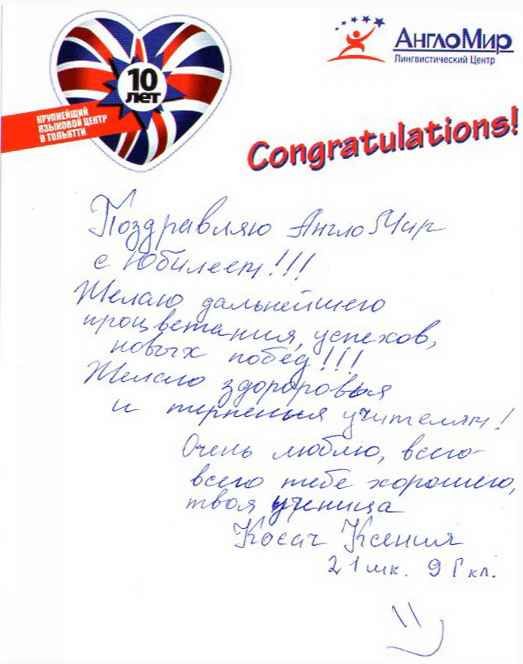 10
лет
КРУПНЕЙШИЙ
ЯЗЫКОВОЙ ЦЕНТР
В ТОЛЬЯТТИ
АнглоМир
Лингвистический Центр
Congratulations!
Поздравляю АнглоМир
с Юбилеем!!!
Желаю дальнейшего
процветания, успехов,
новых побед!!!
Желаю здороровья
и терпенья учителям!
Очень люблю, всего-
всего тебе хорошего,
твоя ученица
Косач Ксения
21 мк. 9 Г кл.